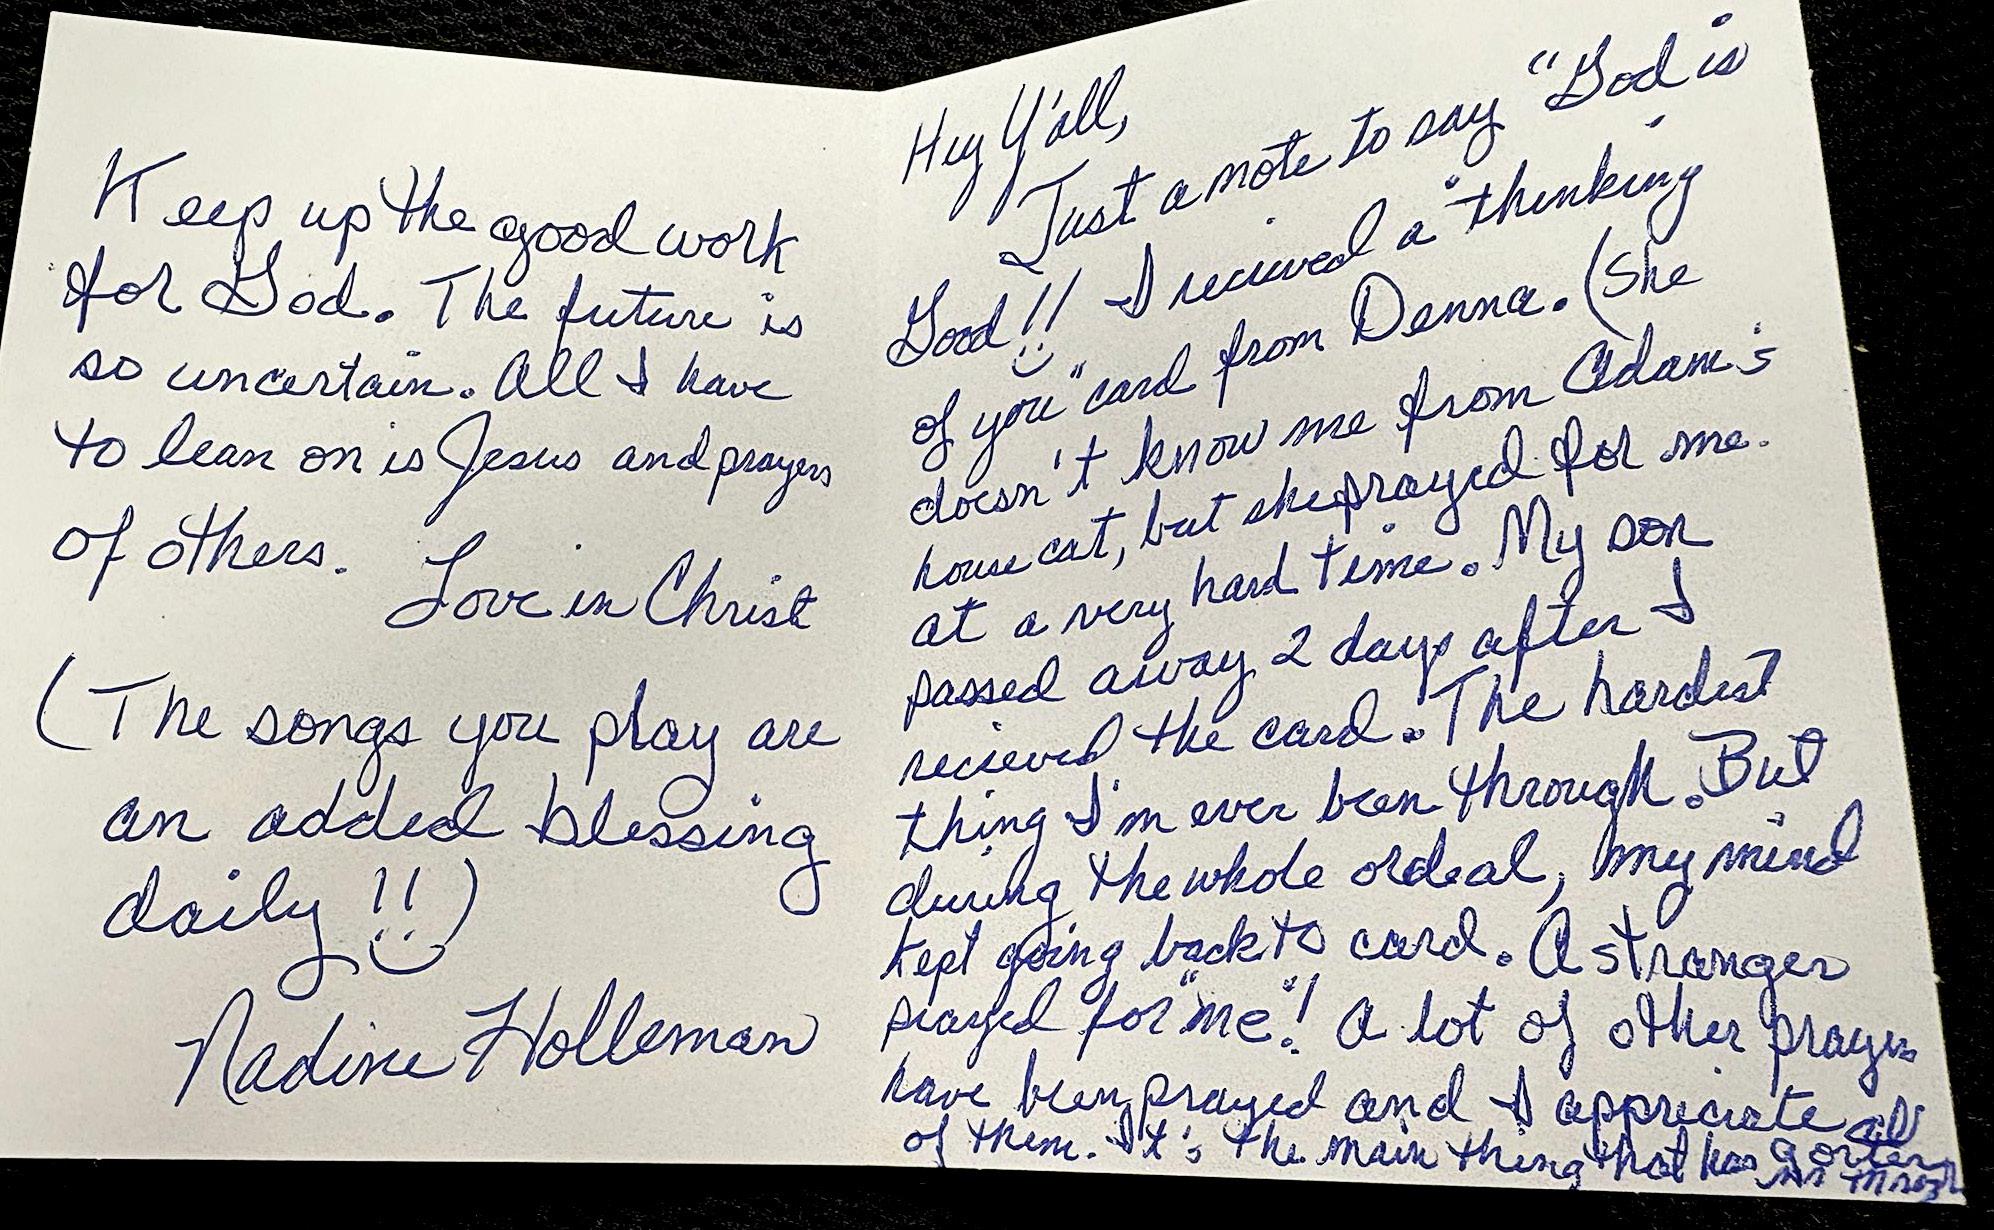 Keep up the good work
for God. The future is
so uncertain. All I have
to lean on is Jesus and prayers
of others.
Love in Christ
(The songs you play are
an added blessing
daily !!)
Nadine Holleman
Hey Y'all,
Just a note to say "God is
Good"!! I recieved a "thinking
of you" card from Denna. (She
doesn't know me from Adam's
house cat, but she prayed for me.
at a very hard time. My son
passed away 2 days after I
recieved the card. The hardest
thing I'm ever been through. But
during the whole ordeal, my mind
kept going back to card. A stranger
prayed for "me"! A lot of other prayers
have been prayed and I appreciate all
of them. It's the main thing that has gotten
me through